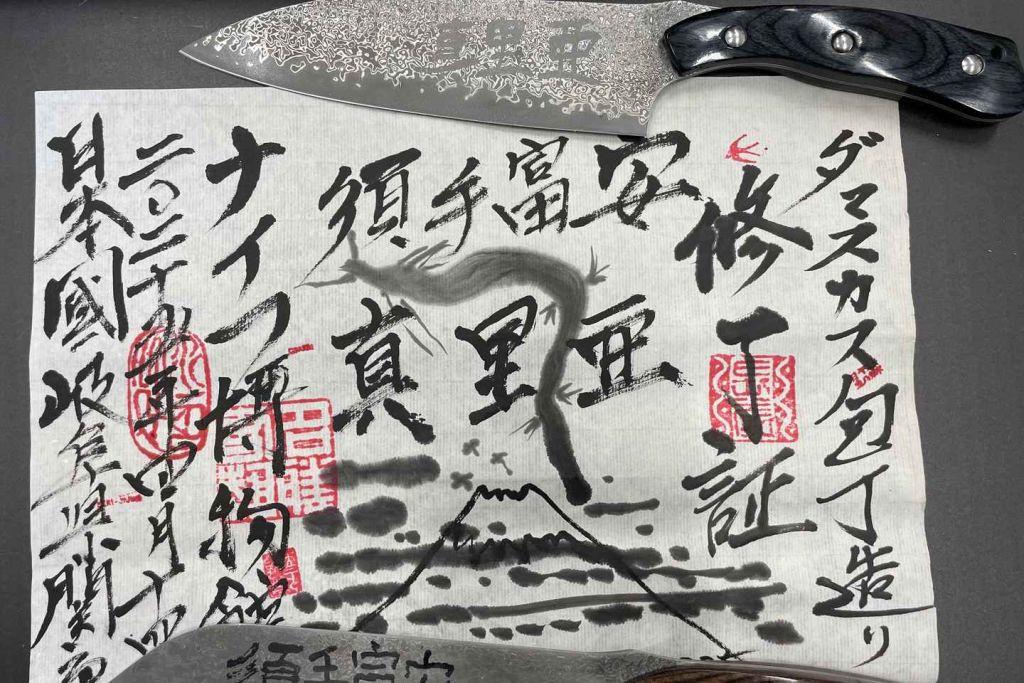 亜里真
ダマスカス包丁造り
修了証
安富手須
亜里真
ナイフ博物館
二〇二十五年四月十四
日本國岐阜県關市
安富手須